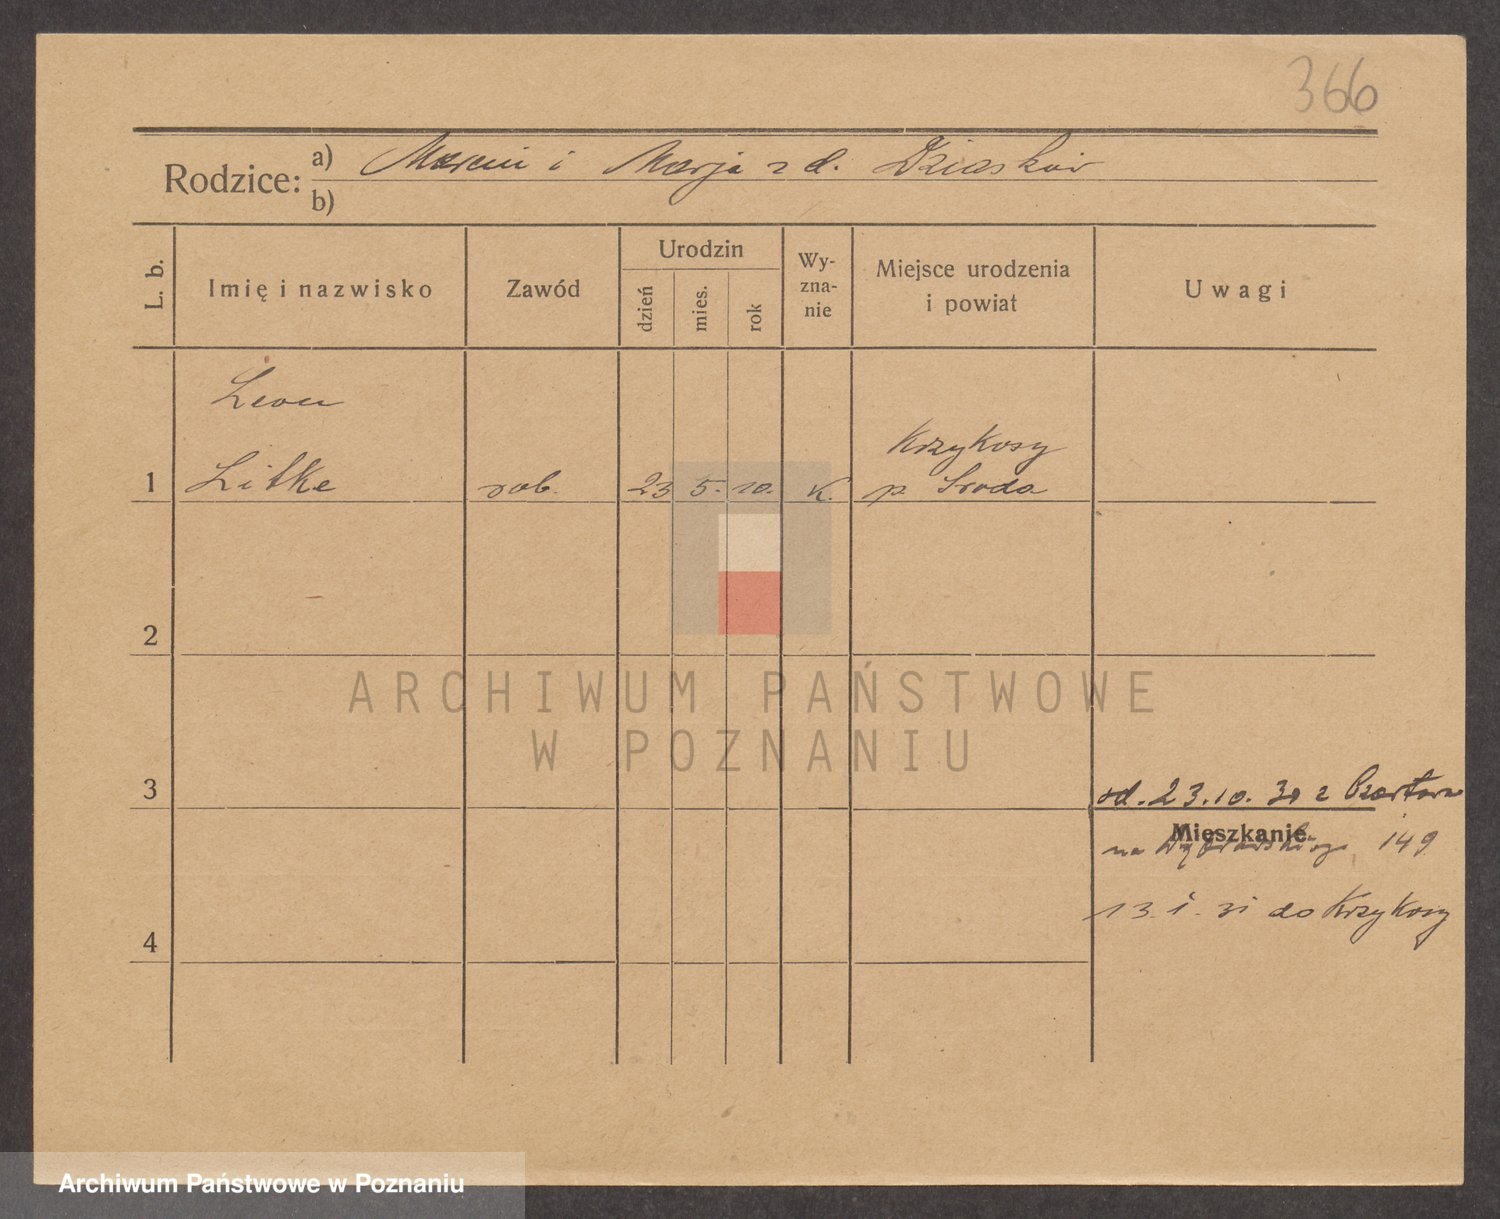 366
Rodzice: a) Marcin i Marja z d. Dziasków
b)
L. b.
Imię i nazwisko
Zawód
Urodzin
dzień
mies.
rok
Wy-
zna-
nie
Miejsce urodzenia
i powiat
Uwagi
Leon
Krzykosy
1 Litke rob. 23 5. 10. K. p. Sroda
2
ARCHIWUM PAŃSTWOWE
W POZNANIU
3
od. 23.10. 30 z
Mieszkanie
na 149
13. 1. 31 do Krzykosy
4
Archiwum Państwowe w Poznaniu